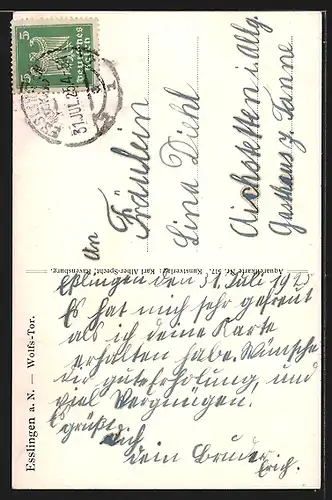 Deutsches Reich
5
31.JUL.25
An
Fräulein
Lina Diehl
Aichstetten i. Allg.
Gasthaus z. Tanne
Aquarellkarte Nr. 517. Kunstverlag: Karl Alber-Specht, Ravensburg.
Esslingen a. N. — Wolfs-Tor.
Esslingen den 31. Juli 1925
Es hat mich sehr gefreut
als ich deine Karte
erhalten habe. Wünsche
dir gute Erholung, und
viel Vergnügen.
Es grüßt
dich
dein Bruder
Erich.